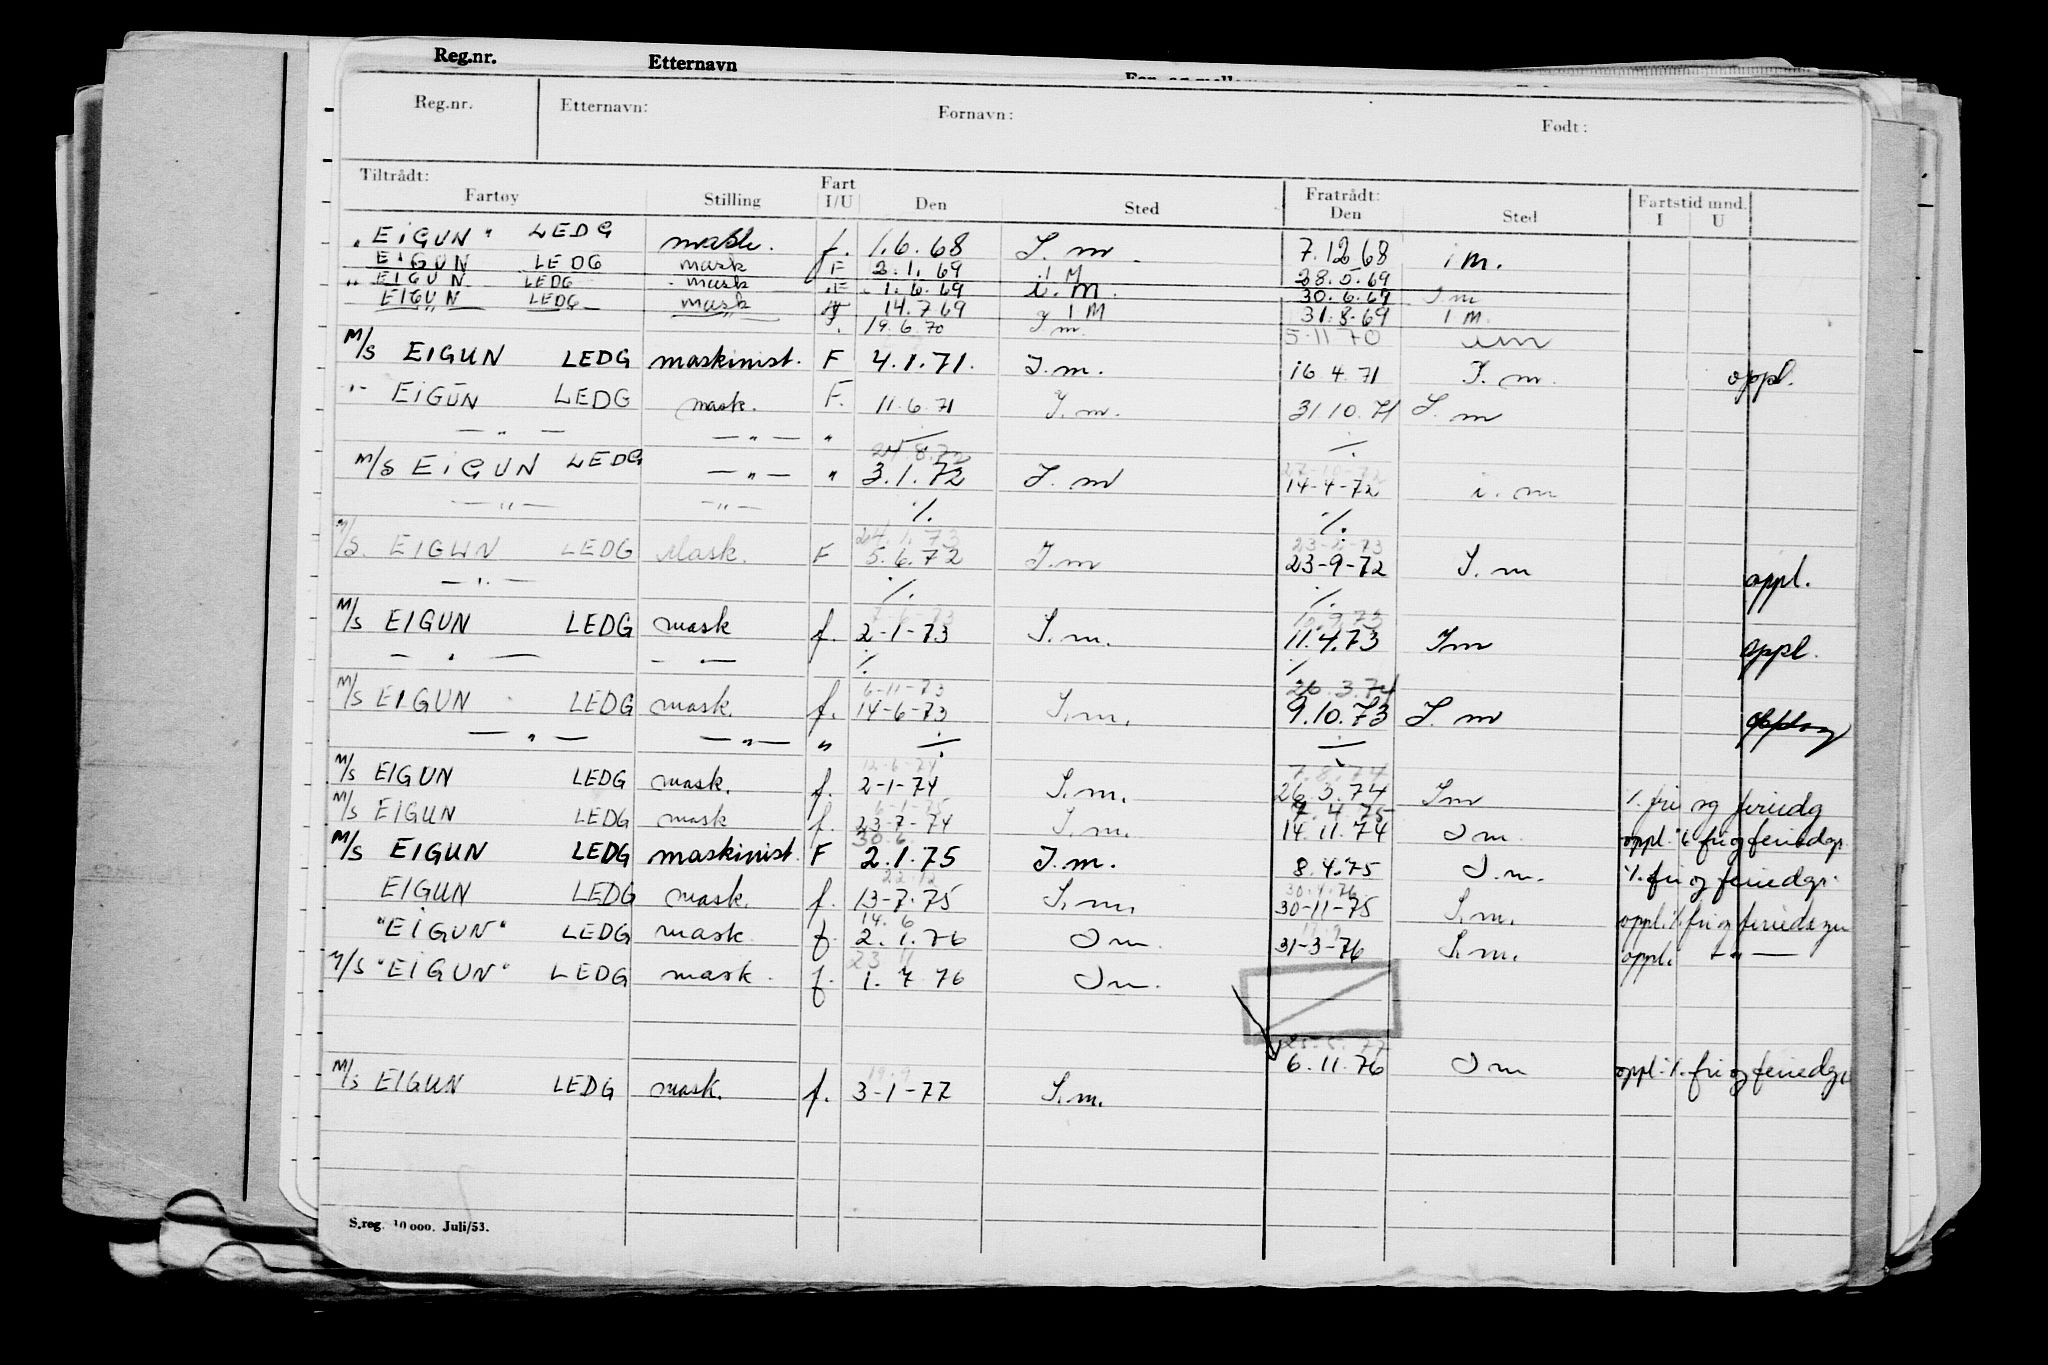 Reg.nr. Etternavn
Reg.nr. Etternavn: Fornavn: Født:
Tiltrådt: Fart Fratrådt: Fartstid mnd.
Fartøy Stilling I/U Den Sted Den Sted I U
"EIGUN" LEDG mask. f. 1.6.68 I.m. 7.12 68 i m.
EIGUN LEDG mask F 2.1.69 i M 28.5.69
" EIGUN LEDG mask F 1.6.69 i.m. 30.6.69 I m
EIGUN LEDG mask 14.7.69 I M 31.8.69 I M.
" " " f. 19.6.70 I m. 5.11 70 i m
M/S EIGUN LEDG maskinist. F 4.1.71. I.m. 16.4.71 I.m. oppl.
"- EIGUN LEDG mask. F. 11.6.71 I.m. 31.10.71 I.m
— " — — " — " 24.8.72 ⁒ 27-10-72 ⁒
M/S EIGUN LEDG — " — " 3.1.72 I.m 14-4-72 i.m
— " — — " — ⁒ ⁒
24.1.73 23-2-73
M/S. EIGUN LEDG Mask. F 5.6.72 I.m 23-9-72 I.m oppl.
— " — ⁒ ⁒
7-6-73
M/S EIGUN LEDG mask f. 2-1-73 I.m. 11.4.73 Im oppl.
— " — — " — ⁒ ⁒
6-11-73 26.3.74
M/S EIGUN LEDG mask. f. 14-6-73 I.m. 9.10.73 I.m
— " — — " — " ⁒ ⁒
12-6-74 7.8.74
M/S EIGUN LEDG mask. f. 2-1-74 I.m. 26.3.74 Im ⁒ fri og feriedg
6-1-75 7.4.75
M/S EIGUN LEDG mask f. 23-7-74 I.m. 14.11.74 I m. oppl. ⁒ fri og feriedgr.
30.6.
M/S EIGUN LEDG maskinist. F 2.1.75 I.m. 8.4.75 I.m. ⁒ fri og feriedgr.
22.12 30.4.76
EIGUN LEDG mask. f. 13-7-75 I.m. 30-11-75 I.m. oppl. ⁒ fri og feriedager
14.6
"EIGUN" LEDG mask f. 2.1.76 I m. 31-3-76 I.m. oppl. — " —
23 11
M/S "EIGUN" LEDG mask. f. 1.7.76 I m.
25.5.77
6.11.76 I m oppl. ⁒ fri og feriedgr
19.9
M/S EIGUN LEDG mask. f. 3-1-77 I.m.
S.reg. 10 000. Juli/53.